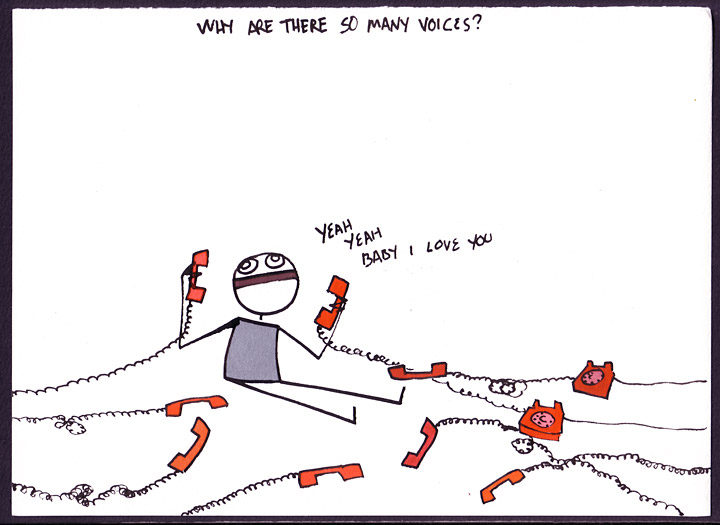 WHY ARE THERE SO MANY VOICES?
YEAH
YEAH
BABY I LOVE YOU